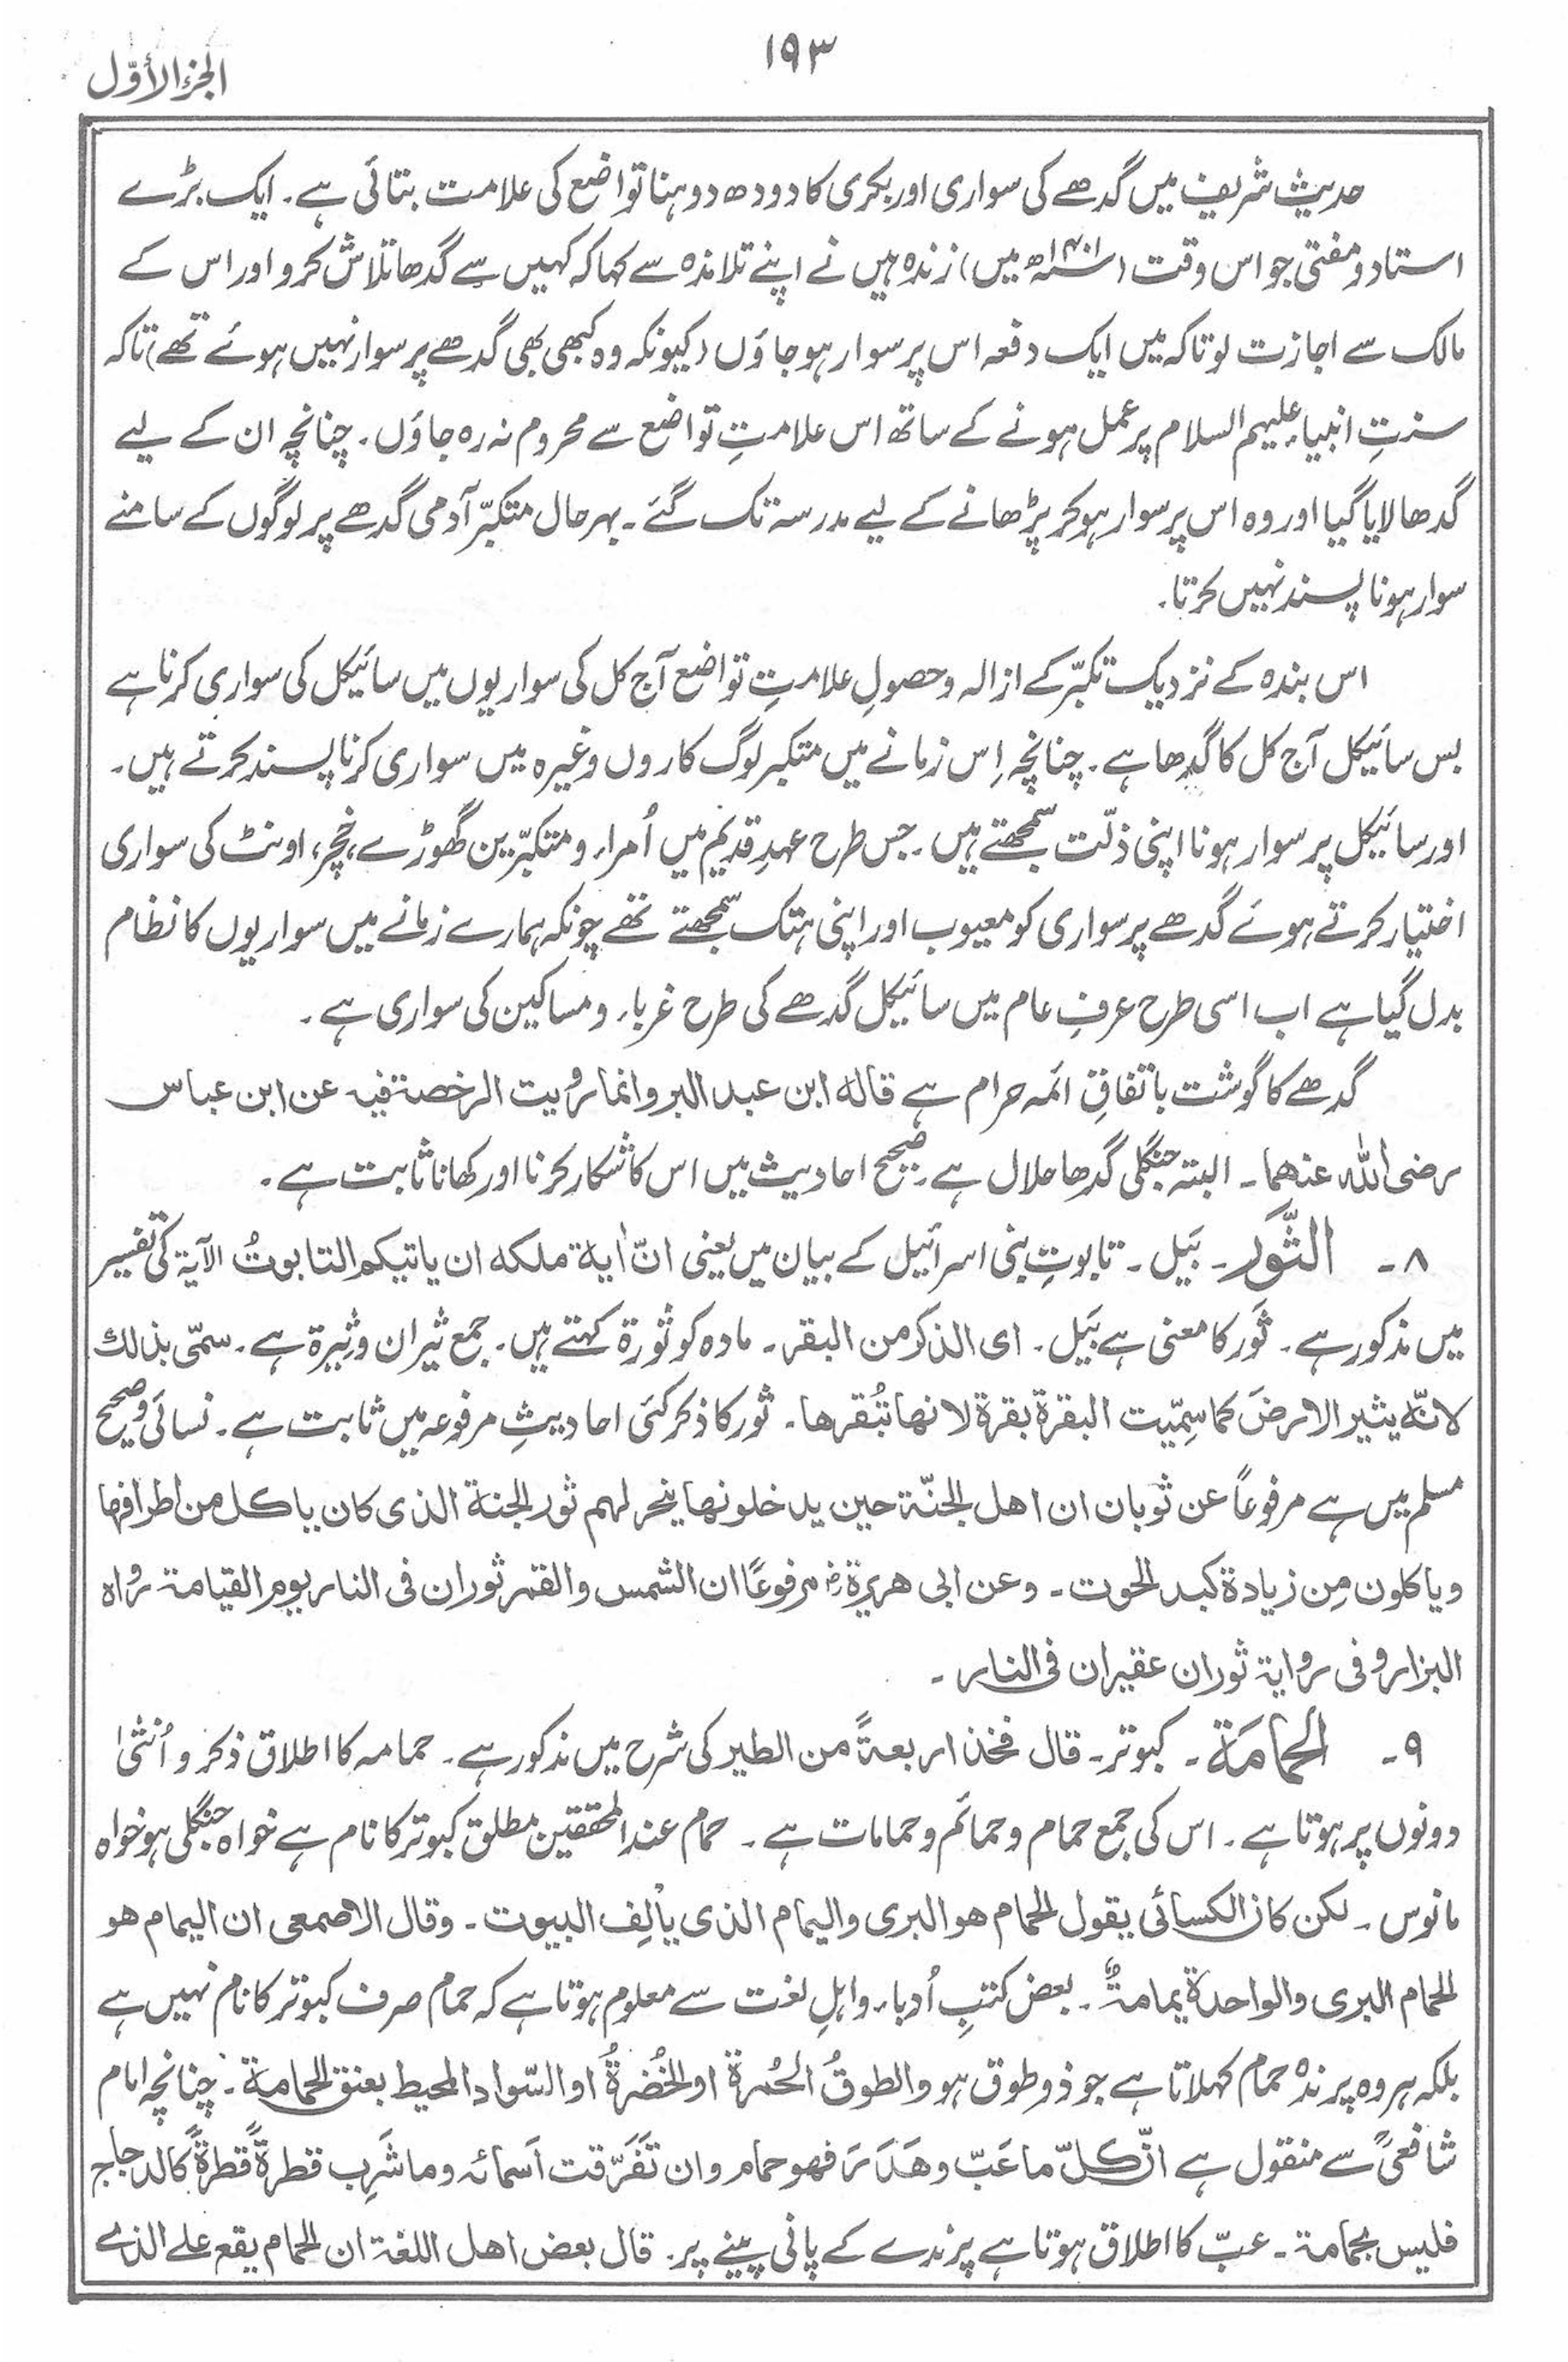 ۱۹۳
الجزء الأوّل
حدیث شریف میں گدھے کی سواری اور بکری کا دودھ دوہنا تواضع کی علامت بتائی ہے۔ ایک بڑے
استاد و مفتی جو اس وقت (۱۴۰۱ھ میں) زندہ ہیں نے اپنے تلامذہ سے کہا کہ کہیں سے گدھا تلاش کرو اور اس کے
مالک سے اجازت لو تاکہ میں ایک دفعہ اس پر سوار ہو جاؤں (کیونکہ وہ کبھی بھی گدھے پر سوار نہیں ہوئے تھے) تاکہ
سنتِ انبیاء علیہم السلام پر عمل ہونے کے ساتھ اس علامتِ تواضع سے محروم نہ رہ جاؤں۔ چنانچہ ان کے لیے
گدھا لایا گیا اور وہ اس پر سوار ہو کر پڑھانے کے لیے مدرسہ تک گئے۔ بہرحال متکبّر آدمی گدھے پر لوگوں کے سامنے
سوار ہونا پسند نہیں کرتا۔
اس بندہ کے نزدیک تکبّر کے ازالہ و حصولِ علامتِ تواضع آج کل کی سواریوں میں سائیکل کی سواری کرنا ہے
بس سائیکل آج کل کا گدھا ہے۔ چنانچہ اِس زمانے میں متکبر لوگ کاروں وغیرہ میں سواری کرنا پسند کرتے ہیں۔
اور سائیکل پر سوار ہونا اپنی ذلّت سمجھتے ہیں۔ جس طرح عہدِ قدیم میں اُمراء و متکبّرین گھوڑے، خچر، اونٹ کی سواری
اختیار کرتے ہوئے گدھے پر سواری کو معیوب اور اپنی ہتک سمجھتے تھے چونکہ ہمارے زمانے میں سواریوں کا نظام
بدل گیا ہے اب اسی طرح عرفِ عام میں سائیکل گدھے کی طرح غرباء و مساکین کی سواری ہے۔
گدھے کا گوشت باتفاقِ ائمہ حرام ہے قالہ ابن عبد البر وانما رُویت الرخصۃ فیہ عن ابن عباس
رضی اللہ عنھما۔ البتہ جنگلی گدھا حلال ہے۔ صحیح احادیث میں اس کا شکار کرنا اور کھانا ثابت ہے۔
۸۔ الثَّور۔ بَیل۔ تابوتِ بنی اسرائیل کے بیان میں یعنی انّ اٰیۃ ملکہ ان یاتیکم التابوتُ الآیۃ کی تفسیر
میں مذکور ہے۔ ثَور کا معنی ہے بَیل۔ ای الذکر من البقر۔ مادہ کو ثورۃ کہتے ہیں۔ جمع ثیران وثیرۃ ہے۔ سمّی بذلك
لانّہ یثیر الارضَ کما سِمّیت البقرۃ بقرۃ لانھا تبُقرھا۔ ثور کا ذکر کئی احادیثِ مرفوعہ میں ثابت ہے۔ نسائی و صحیح
مسلم میں ہے مرفوعاً عن ثوبان ان اھل الجنّۃ حین یدخلونھا ینحر لہم ثور الجنۃ الذی کان یاکل من اطرافھا
ویاکلون مِن زیادۃ کبد الحوت۔ وعن ابی ھریرۃؓ مرفوعًا ان الشمس والقمر ثوران فی النار یوم القیامۃ رواہ
البزار وفی روایۃ ثوران عقیران فی النار۔
۹۔ الحَمَامَۃ۔ کبوتر۔ قال فخذ اربعۃً من الطیر کی شرح میں مذکور ہے۔ حمامہ کا اطلاق ذکر و اُنثیٰ
دونوں پر ہوتا ہے۔ اس کی جمع حمام و حمائم و حمامات ہے۔ حمام عند المحققین مطلق کبوتر کا نام ہے خواہ جنگلی ہو خواہ
مانوس۔ لکن کان الکسائی یقول الحمام ھو البری والیمام الذی یأْلِف البیوت۔ وقال الاصمعی ان الیمام ھو
الحمام البری والواحدۃ یمامۃٌ۔ بعض کتبِ اُدباء و اہلِ لغت سے معلوم ہوتا ہے کہ حمام صرف کبوتر کا نام نہیں ہے
بلکہ ہر وہ پرندہ حمام کہلاتا ہے جو ذو طوق ہو والطوقُ الحُمرۃ او الخُضرۃُ او السّواد المحیط بعنق الحمامۃ۔ چنانچہ امام
شافعیؒ سے منقول ہے انّ کلّ ما عَبّ وھَدَر فھو حمام وان تَفَرّقت اَسمائہ وما شَرِب قطرۃً قطرۃً کالدجاج
فلیس بحمامۃ۔ عبّ کا اطلاق ہوتا ہے پرندے کے پانی پینے پر۔ قال بعض اھل اللغۃ ان الحمام یقع علے الذے